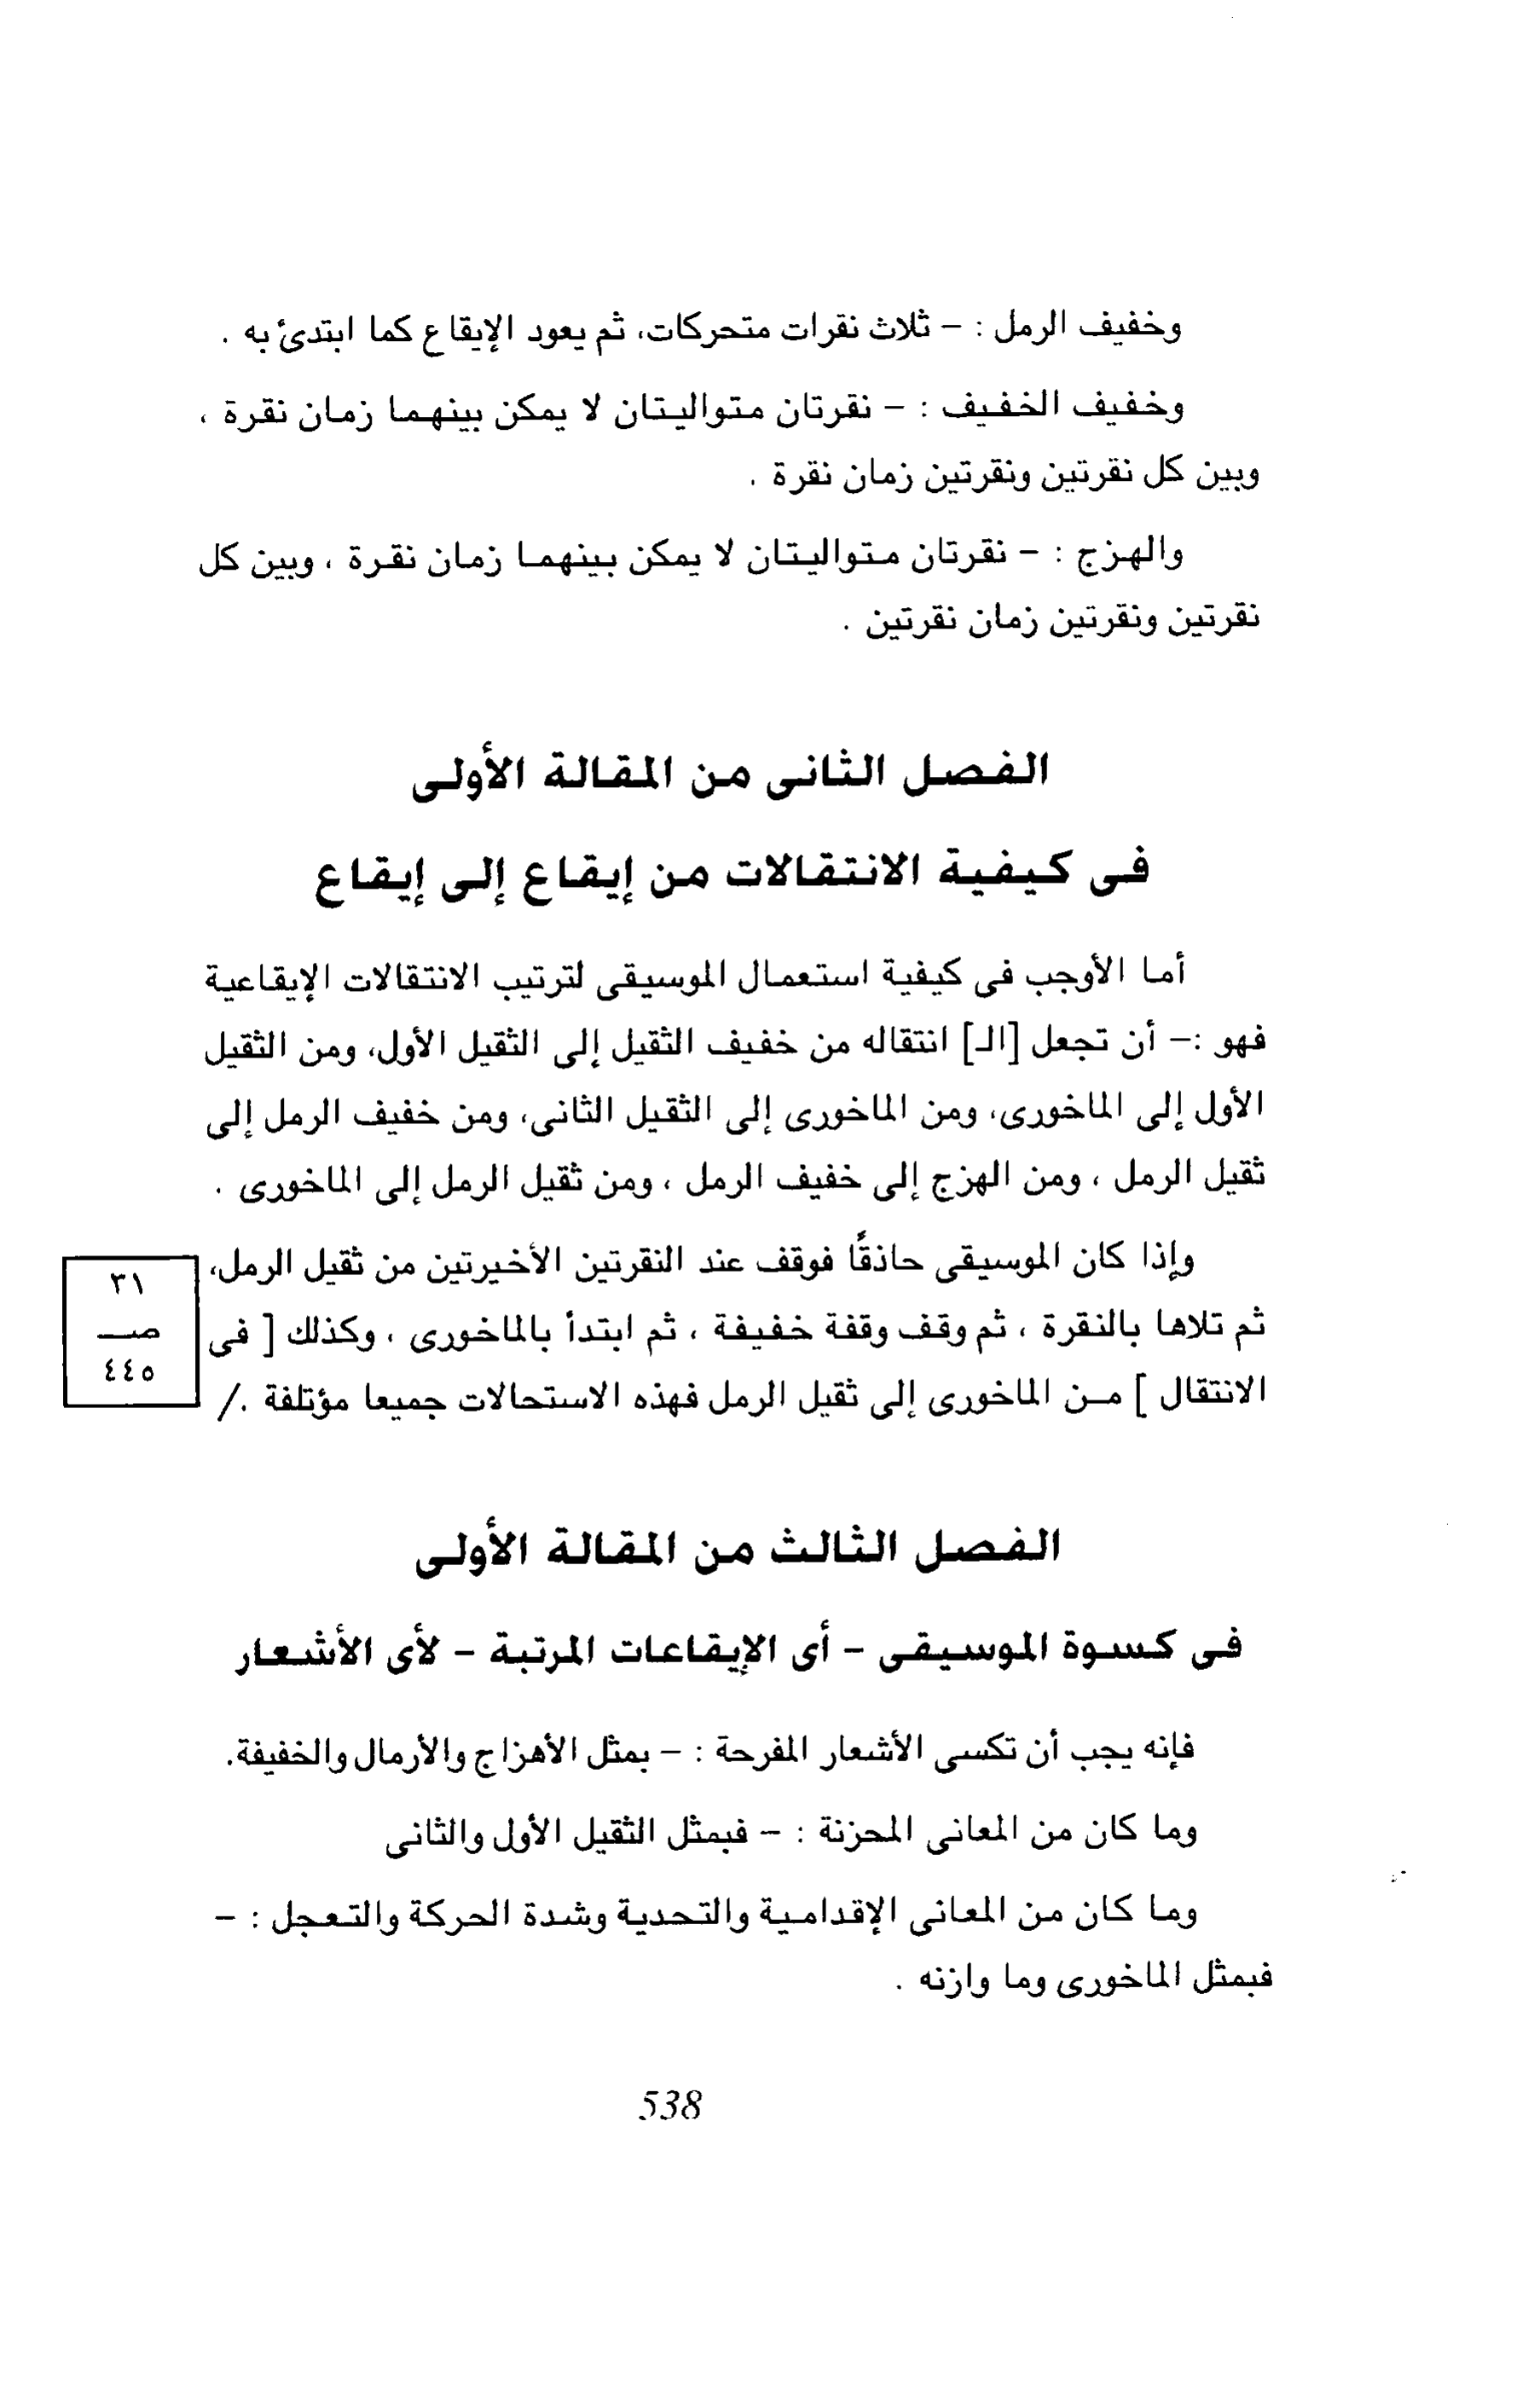 وخفيف الرمل : – ثلاث نقرات متحركات، ثم يعود الإيقاع كما ابتدئ به .
وخفيف الخفيف : – نقرتان متواليتان لا يمكن بينهما زمان نقرة ،
وبين كل نقرتين ونقرتين زمان نقرة .
والهزج : – نقرتان متواليتان لا يمكن بينهما زمان نقرة ، وبين كل
نقرتين ونقرتين زمان نقرتين .
الفصل الثانى من المقالة الأولى
فى كيفية الانتقالات من إيقاع إلى إيقاع
أما الأوجب فى كيفية استعمال الموسيقى لترتيب الانتقالات الإيقاعية
فهو :– أن تجعل [الـ] انتقاله من خفيف الثقيل إلى الثقيل الأول، ومن الثقيل
الأول إلى الماخورى، ومن الماخورى إلى الثقيل الثانى، ومن خفيف الرمل إلى
ثقيل الرمل ، ومن الهزج إلى خفيف الرمل ، ومن ثقيل الرمل إلى الماخورى .
وإذا كان الموسيقى حاذقًا فوقف عند النقرتين الأخيرتين من ثقيل الرمل،
ثم تلاها بالنقرة ، ثم وقف وقفة خفيفة ، ثم ابتدأ بالماخورى ، وكذلك [ فى
الانتقال ] من الماخورى إلى ثقيل الرمل فهذه الاستحالات جميعا مؤتلفة ./
٣١
صـ
٤٤٥
الفصل الثالث من المقالة الأولى
فى كسوة الموسيقى – أى الإيقاعات المرتبة – لأى الأشعار
فإنه يجب أن تكسى الأشعار المفرحة : – بمثل الأهزاج والأرمال والخفيفة.
وما كان من المعانى المحزنة : – فبمثل الثقيل الأول والثانى
وما كان من المعانى الإقدامية والتحدية وشدة الحركة والتعجل : –
فبمثل الماخورى وما وازنه .
538